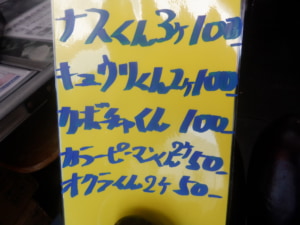 ナスくん3ケ100
キュウリくん2ケ100
カボチャくん 100
カラーピーマンくん2ケ50
オクラくん2ケ50